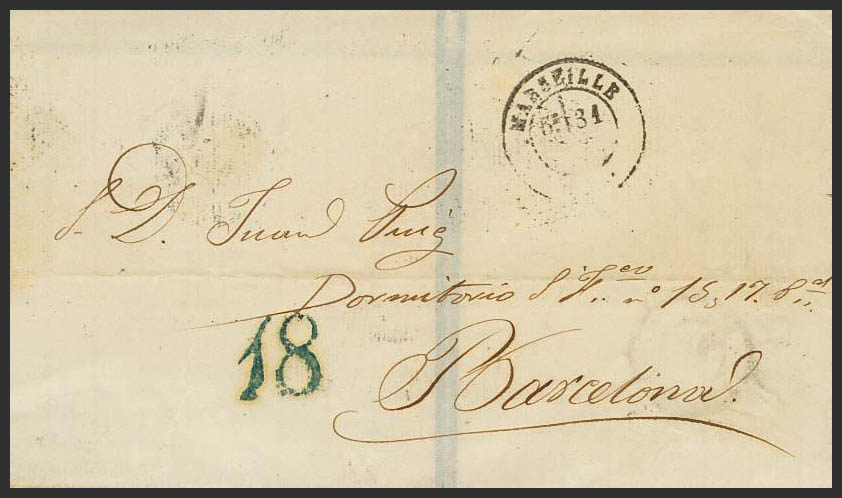 MARSEILLE
31
S. D. Juan Puig
Dormitorio S. F.co nº 15, 17.
18
Barcelona.